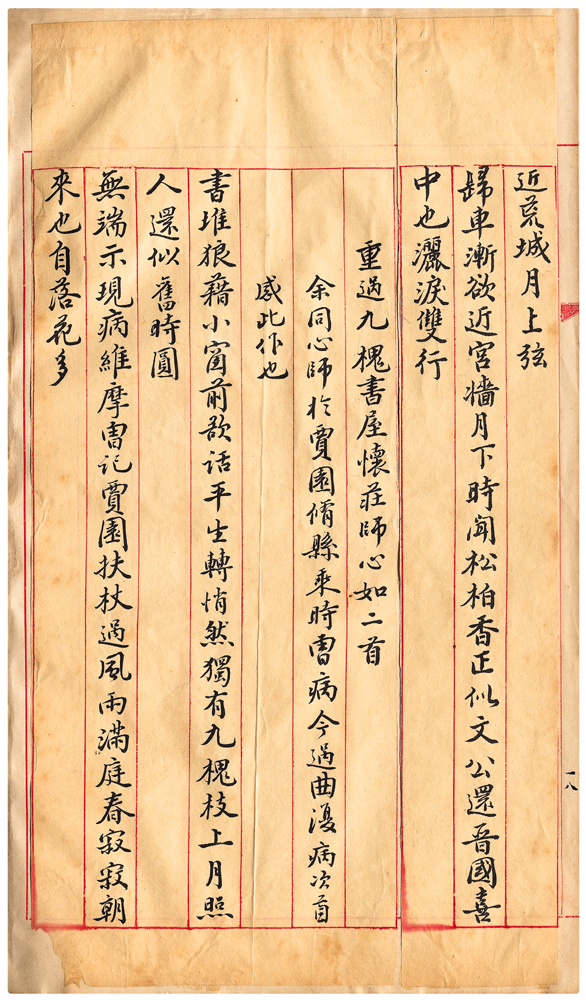 近荒城月上弦
歸車漸欲近宮牆月下時聞松柏香正似文公還晉國喜
中也灑淚雙行
重過九槐書屋懷莊師心如二首
余同心師於賈園脩縣乘時曾病今過曲復病次首
感此作也
書堆狼藉小窗前欲話平生轉悄然獨有九槐枝上月照
人還似舊時圓
無端示現病維摩曾記賈園扶杖過風雨滿庭春寂寂朝
來也自落花多
一八